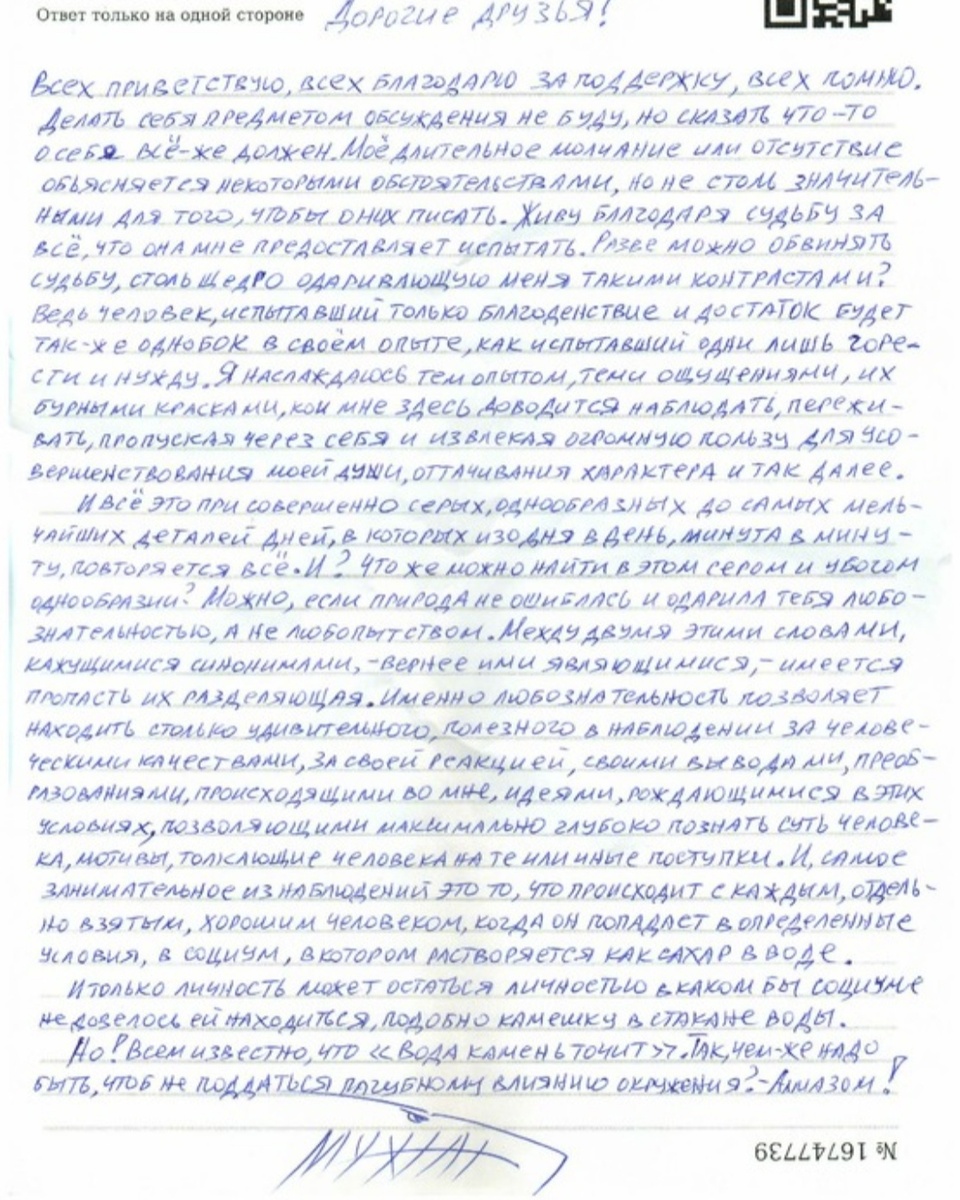 Ответ только на одной стороне
Дорогие друзья!
Всех приветствую, всех благодарю за поддержку, всех помню.
Делать себя предметом обсуждения не буду, но сказать что-то
о себе всё-же должен. Моё длительное молчание или отсутствие
объясняется некоторыми обстоятельствами, но не столь значитель-
ными для того, чтобы о них писать. Живу благодаря судьбу за
всё, что она мне предоставляет испытать. Разве можно обвинять
судьбу, столь щедро одаривающую меня такими контрастами?
Ведь человек, испытавший только благоденствие и достаток будет
так-же однобок в своём опыте, как испытавший одни лишь горе-
сти и нужду. Я наслаждаюсь тем опытом, теми ощущениями, их
бурными красками, кои мне здесь доводится наблюдать, пережи-
вать, пропуская через себя и извлекая огромную пользу для усо-
вершенствования моей души, оттачивания характера и так далее.
И всё это при совершенно серых, однообразных до самых мель-
чайших деталей дней, в которых изо дня в день, минута в мину-
ту, повторяется всё. И? Что же можно найти в этом сером и убогом
однообразии? Можно, если природа не ошиблась и одарила тебя любо-
знательностью, а не любопытством. Между двумя этими словами,
кажущимися синонимами, -вернее ими являющимися,- имеется
пропасть их разделяющая. Именно любознательность позволяет
находить столько удивительного, полезного в наблюдении за челове-
ческими качествами, за своей реакцией, своими выводами, преоб-
разованиями, происходящими во мне, идеями, рождающимися в этих
условиях, позволяющими максимально глубоко познать суть челове-
ка, мотивы, толкающие человека на те или иные поступки. И, самое
занимательное из наблюдений это то, что происходит с каждым, отдель-
но взятым, хорошим человеком, когда он попадает в определенные
условия, в социум, в котором растворяется как сахар в воде.
И только личность может остаться личностью в каком бы социуме
не довелось ей находиться, подобно камешку в стакане воды.
Но! Всем известно, что «Вода камень точит». Так, чем-же надо
быть, чтоб не поддаться пагубному влиянию окружения?-Алмазом!
№ 16747739